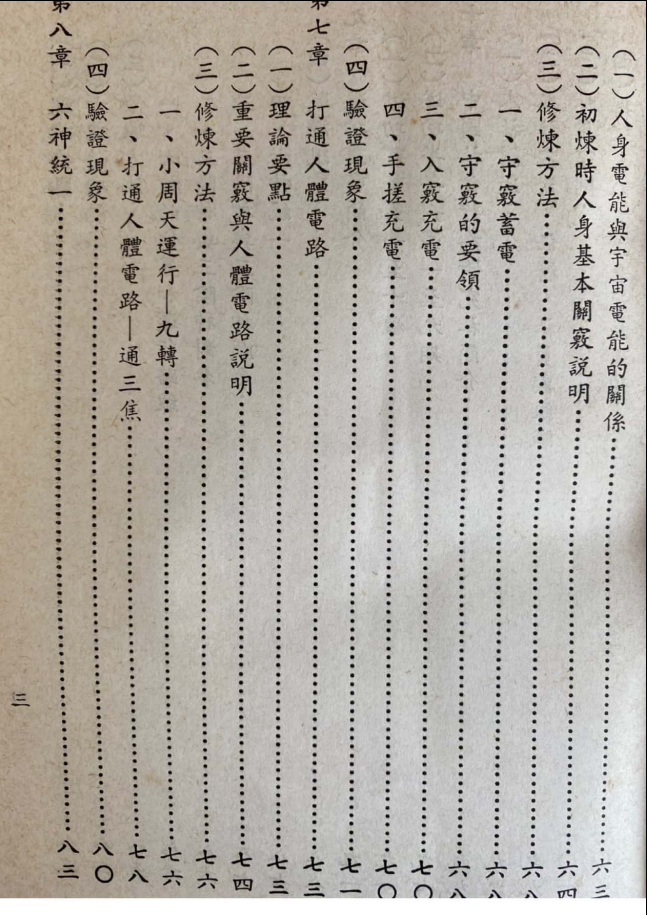 (一)人身電能與宇宙電能的關係……六三
(二)初煉時人身基本關竅説明……六四
(三)修煉方法……六八
一、守竅蓄電……六八
二、守竅的要領……六八
三、入竅充電……七〇
四、手搓充電……七〇
(四)驗證現象……七一
第七章 打通人體電路……七三
(一)理論要點……七三
(二)重要關竅與人體電路説明……七四
(三)修煉方法……七六
一、小周天運行—九轉……七六
二、打通人體電路—通三焦……七八
(四)驗證現象……八〇
第八章 六神統一……八三
三